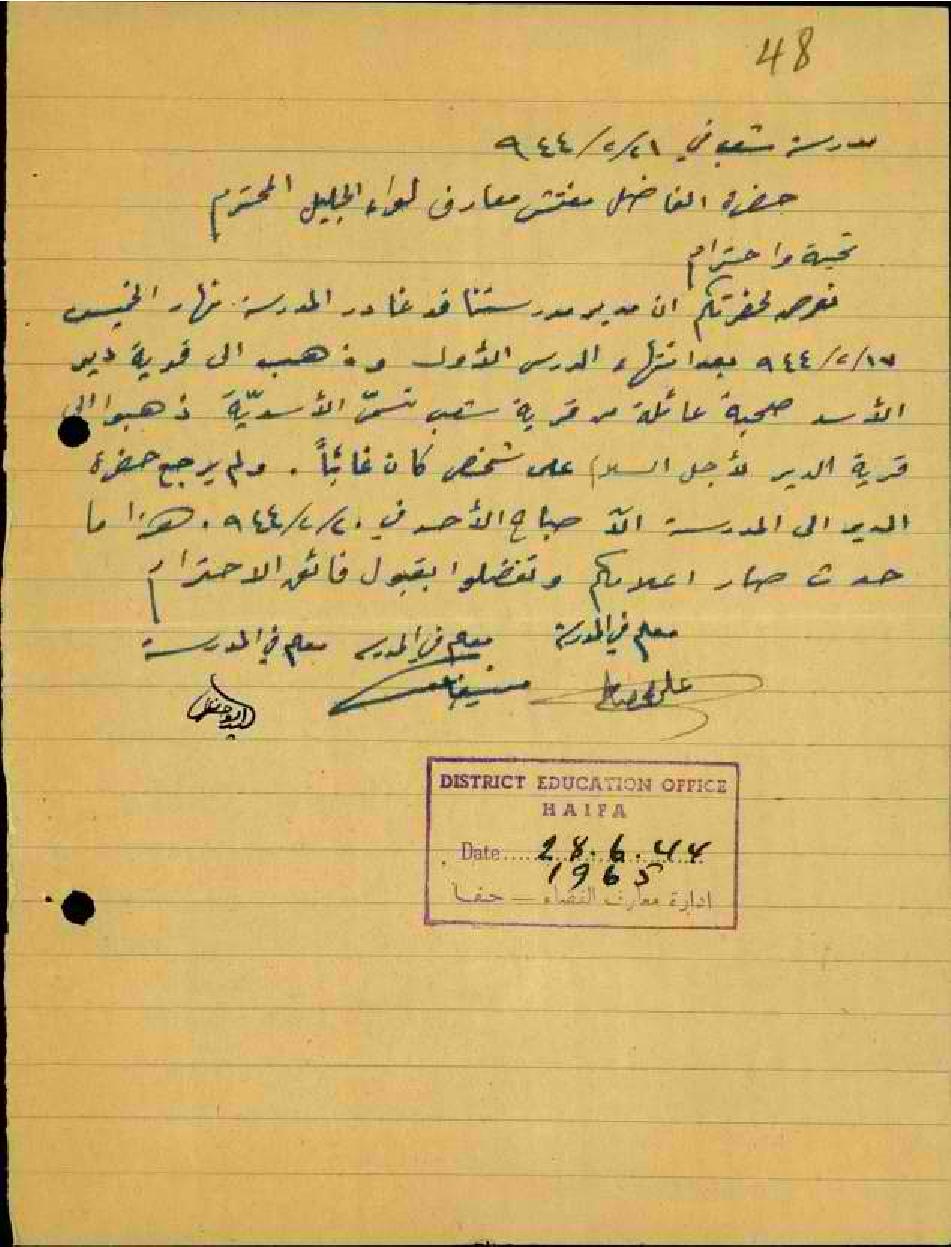 48
مدرسة شعب في ٢١/٢/٩٤٤
حضرة الفاضل مفتش معارف لواء الجليل المحترم
تحية واحترام
نعرض لحضرتكم ان مدير مدرستنا قد غادر المدرسة نهار الخميس
١٧/٢/٩٤٤ بعد انتهاء الدرس الأول وذهب الى قرية دير
الأسد صحبة عائلة من قرية شعب تسمّى الأسديّة ذهبوا الى
قرية الدير لأجل السلام على شخص كان غائباً. ولم يرجع حضرة
المدير الى المدرسة الاّ صباح الأحد في ٢٠/٢/٩٤٤. هذا ما
حدث صار اعلامكم وتفضلوا بقبول فائق الاحترام
معلم في المدرسة معلم في المدرسه معلم في المدرسة
علي
DISTRICT EDUCATION OFFICE
HAIFA
Date.... 28.6.44
1965
ادارة معارف القضاء – حيفا